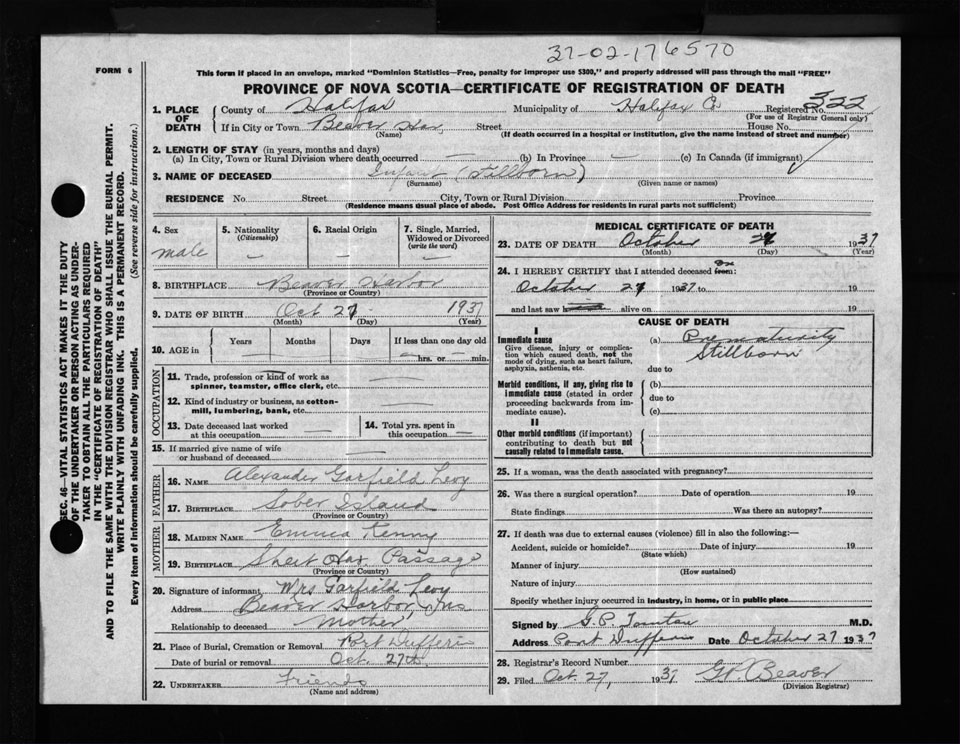 37-02-176570
FORM 6
This form if placed in an envelope, marked "Dominion Statistics—Free, penalty for improper use $300," and properly addressed will pass through the mail "FREE"
PROVINCE OF NOVA SCOTIA—CERTIFICATE OF REGISTRATION OF DEATH
1. PLACE OF DEATH County of Halifax Municipality of Halifax Co Registered No. 322
(For use of Registrar General only)
If in City or Town Beaver Har, Street House No.
(Name) (If death occurred in a hospital or institution, give the name instead of street and number)
2. LENGTH OF STAY (in years, months and days)
(a) In City, Town or Rural Division where death occurred — (b) In Province — (c) In Canada (if immigrant)
3. NAME OF DECEASED Infant (Stillborn)
(Surname) (Given name or names)
RESIDENCE No. Street City, Town or Rural Division Province
(Residence means usual place of abode. Post Office Address for residents in rural parts not sufficient)
4. Sex male
5. Nationality (Citizenship) —
6. Racial Origin —
7. Single, Married, Widowed or Divorced (write the word) —
8. BIRTHPLACE Beaver Harbor
(Province or Country)
9. DATE OF BIRTH Oct 27 1937
(Month) (Day) (Year)
10. AGE in Years Months Days If less than one day old
— hrs. or — min.
OCCUPATION
11. Trade, profession or kind of work as spinner, teamster, office clerk, etc. —
12. Kind of industry or business, as cotton-mill, lumbering, bank, etc. —
13. Date deceased last worked at this occupation —
14. Total yrs. spent in this occupation —
15. If married give name of wife or husband of deceased
FATHER
16. NAME Alexander Garfield Levy
17. BIRTHPLACE Sober Island
(Province or Country)
MOTHER
18. MAIDEN NAME Emma Kenny
19. BIRTHPLACE Sheet Har. Passage
(Province or Country)
20. Signature of informant Mrs Garfield Levy
Address Beaver Harbor, N.S.
Relationship to deceased Mother
21. Place of Burial, Cremation or Removal Port Dufferin
Date of burial or removal Oct. 27th.
22. UNDERTAKER Friends
(Name and address)
MEDICAL CERTIFICATE OF DEATH
23. DATE OF DEATH October 27 1937
(Month) (Day) (Year)
24. I HEREBY CERTIFY that I attended deceased on from:
October 27 1937 to 19
and last saw h alive on 19
CAUSE OF DEATH
I
Immediate cause
Give disease, injury or complication which caused death, not the mode of dying, such as heart failure, asphyxia, asthenia, etc.
(a) Prematurity
Stillborn
due to
Morbid conditions, if any, giving rise to immediate cause (stated in order proceeding backwards from immediate cause).
(b)
due to
(c)
II
Other morbid conditions (if important) contributing to death but not causally related to immediate cause.
25. If a woman, was the death associated with pregnancy?
26. Was there a surgical operation? Date of operation 19
State findings Was there an autopsy?
27. If death was due to external causes (violence) fill in also the following:—
Accident, suicide or homicide? Date of injury 19
(State which)
Manner of injury
(How sustained)
Nature of injury
Specify whether injury occurred in industry, in home, or in public place
Signed by G.P. M.D.
Address Port Dufferin Date October 27 1937
28. Registrar's Record Number
29. Filed Oct. 27, 1937 Beaver
(Division Registrar)
SEC. 46—VITAL STATISTICS ACT MAKES IT THE DUTY
OF THE UNDERTAKER OR PERSON ACTING AS UNDER-
TAKER TO OBTAIN ALL THE PARTICULARS REQUIRED
IN THE "CERTIFICATE OF REGISTRATION OF DEATH"
AND TO FILE THE SAME WITH THE DIVISION REGISTRAR WHO SHALL ISSUE THE BURIAL PERMIT.
WRITE PLAINLY WITH UNFADING INK. THIS IS A PERMANENT RECORD.
Every item of Information should be carefully supplied. (See reverse side for instructions.)